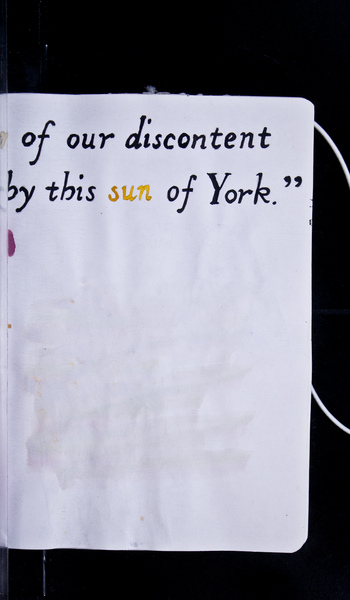 of our discontent
by this sun of York.”